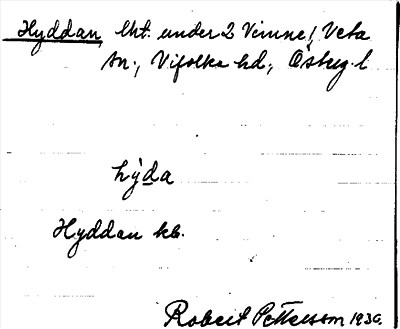 Hyddan, lht. under 2 Vimne, Veta
sn., Vifolka hd, Östergl.
hy̆da
Hyddan kb.
Robert Pettersson 1936.